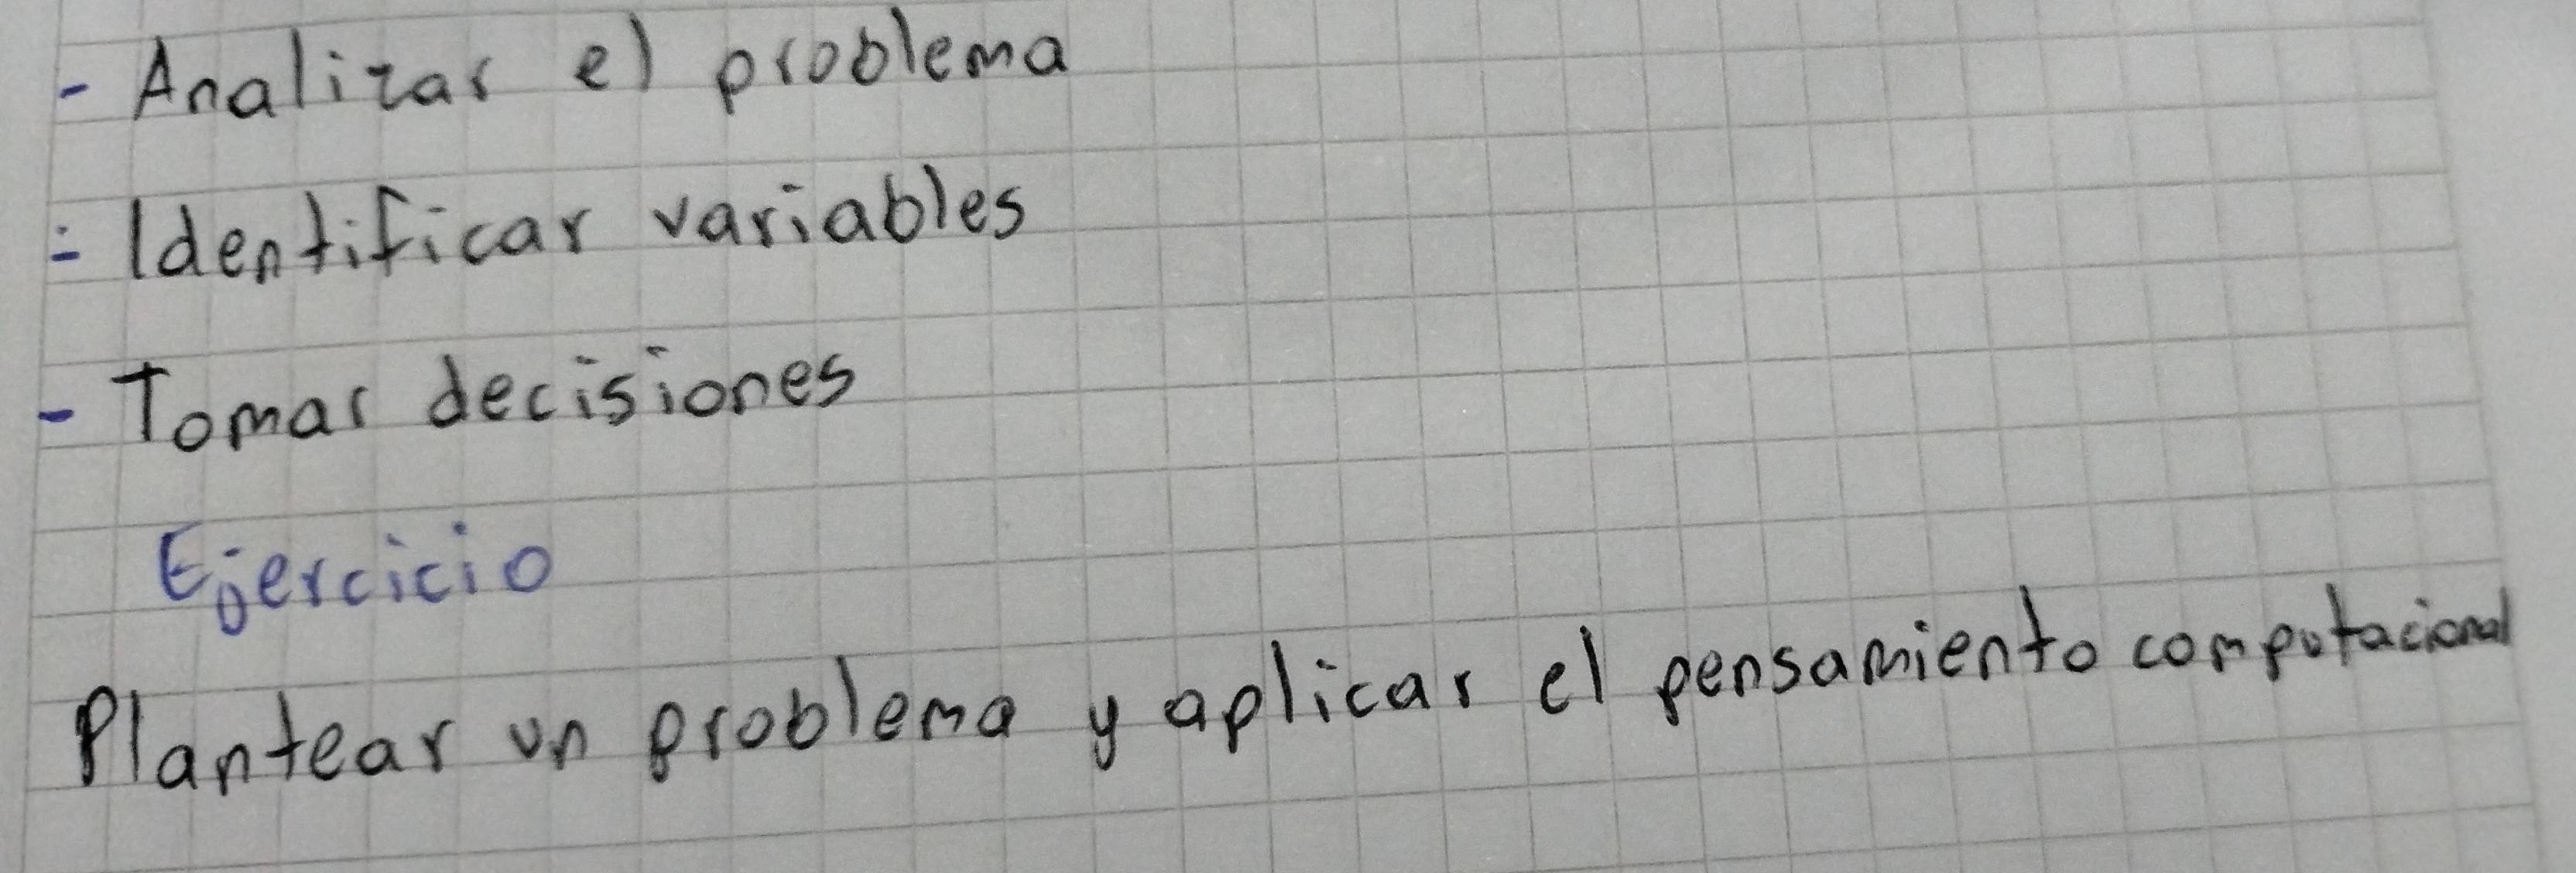 - Analizar el problema
- Identificar variables
- Tomar decisiones
Ejercicio
Plantear un problema y aplicar el pensamiento computacional